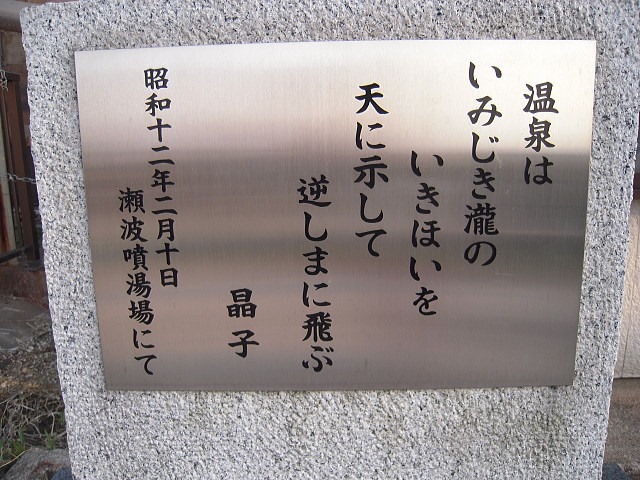 温泉は
いみじき瀧の
いきほいを
天に示して
逆しまに飛ぶ
晶子
昭和十二年二月十日
瀬波噴湯場にて